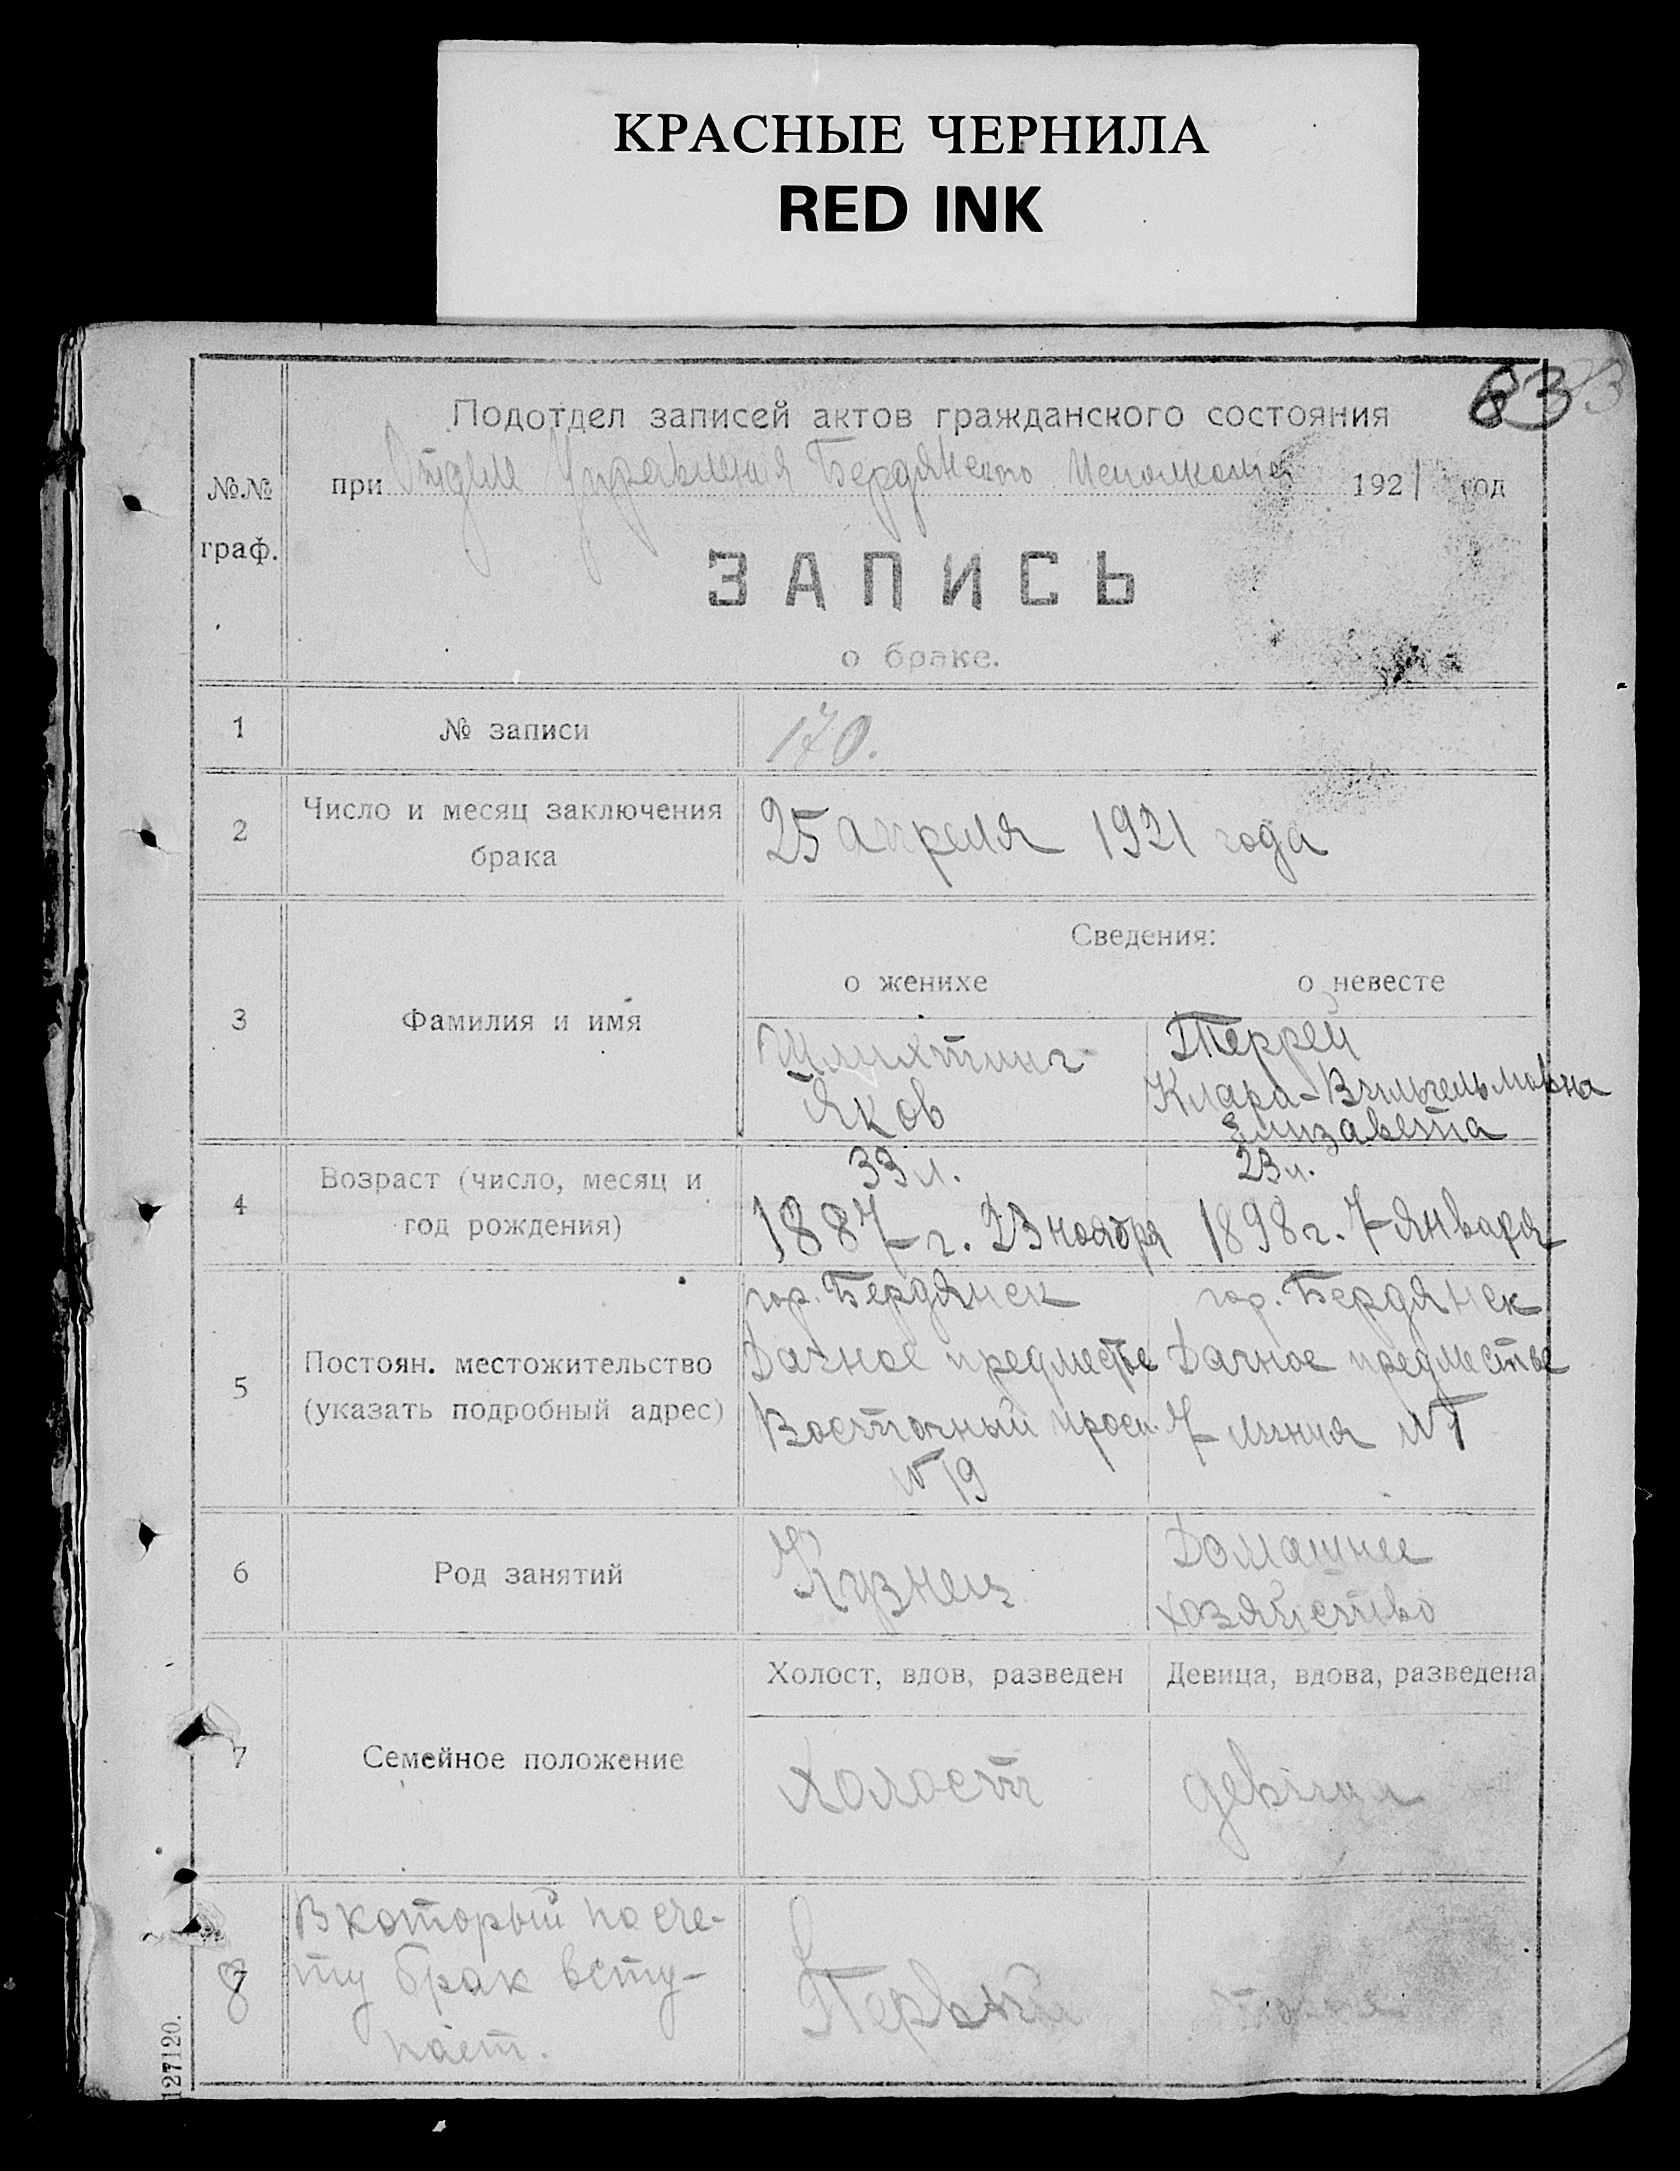 КРАСНЫЕ ЧЕРНИЛА
RED INK
83
Подотдел записей актов гражданского состояния
при Отделе Управления Бердянского Исполкома 1921 год
№№
граф.
ЗАПИСЬ
о браке.
1 № записи 170.
2 Число и месяц заключения
брака
25 апреля 1921 года
Сведения:
о женихе о невесте
3 Фамилия и имя
Шлихтинг
Яков
Террей
Клара-Вильгельмовна
Елизавета
4 Возраст (число, месяц и
год рождения)
33 л.
1887 г. 23 ноября
23 л.
1898 г. 7 января
5 Постоян. местожительство
(указать подробный адрес)
гор. Бердянск
Дачное предместье
Восточный просп.
№ 19
гор. Бердянск
Дачное предместье
7 линия №
6 Род занятий
Кузнец
Домашнее
хозяйство
7 Семейное положение
Холост, вдов, разведен Девица, вдова, разведена
холост девица
8 В который по сче-
ту брак всту-
пает.
Первый
127120.